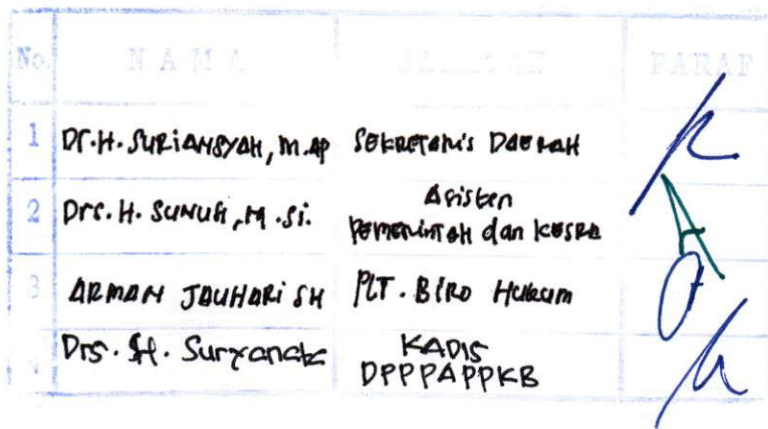 No. N A M A JABATAN PARAF
1 Dr. H. SURIANSYAH, M.AP SEKRETARIS DAERAH
2 Drs. H. SUNUSI, M.Si. Asisten
PEMERINTAH dan KESRA
3 ARMAN JAUHARI SH PLT. BIRO HUKUM
4 Drs. H. Suryanata KADIS
DPPPAPPKB